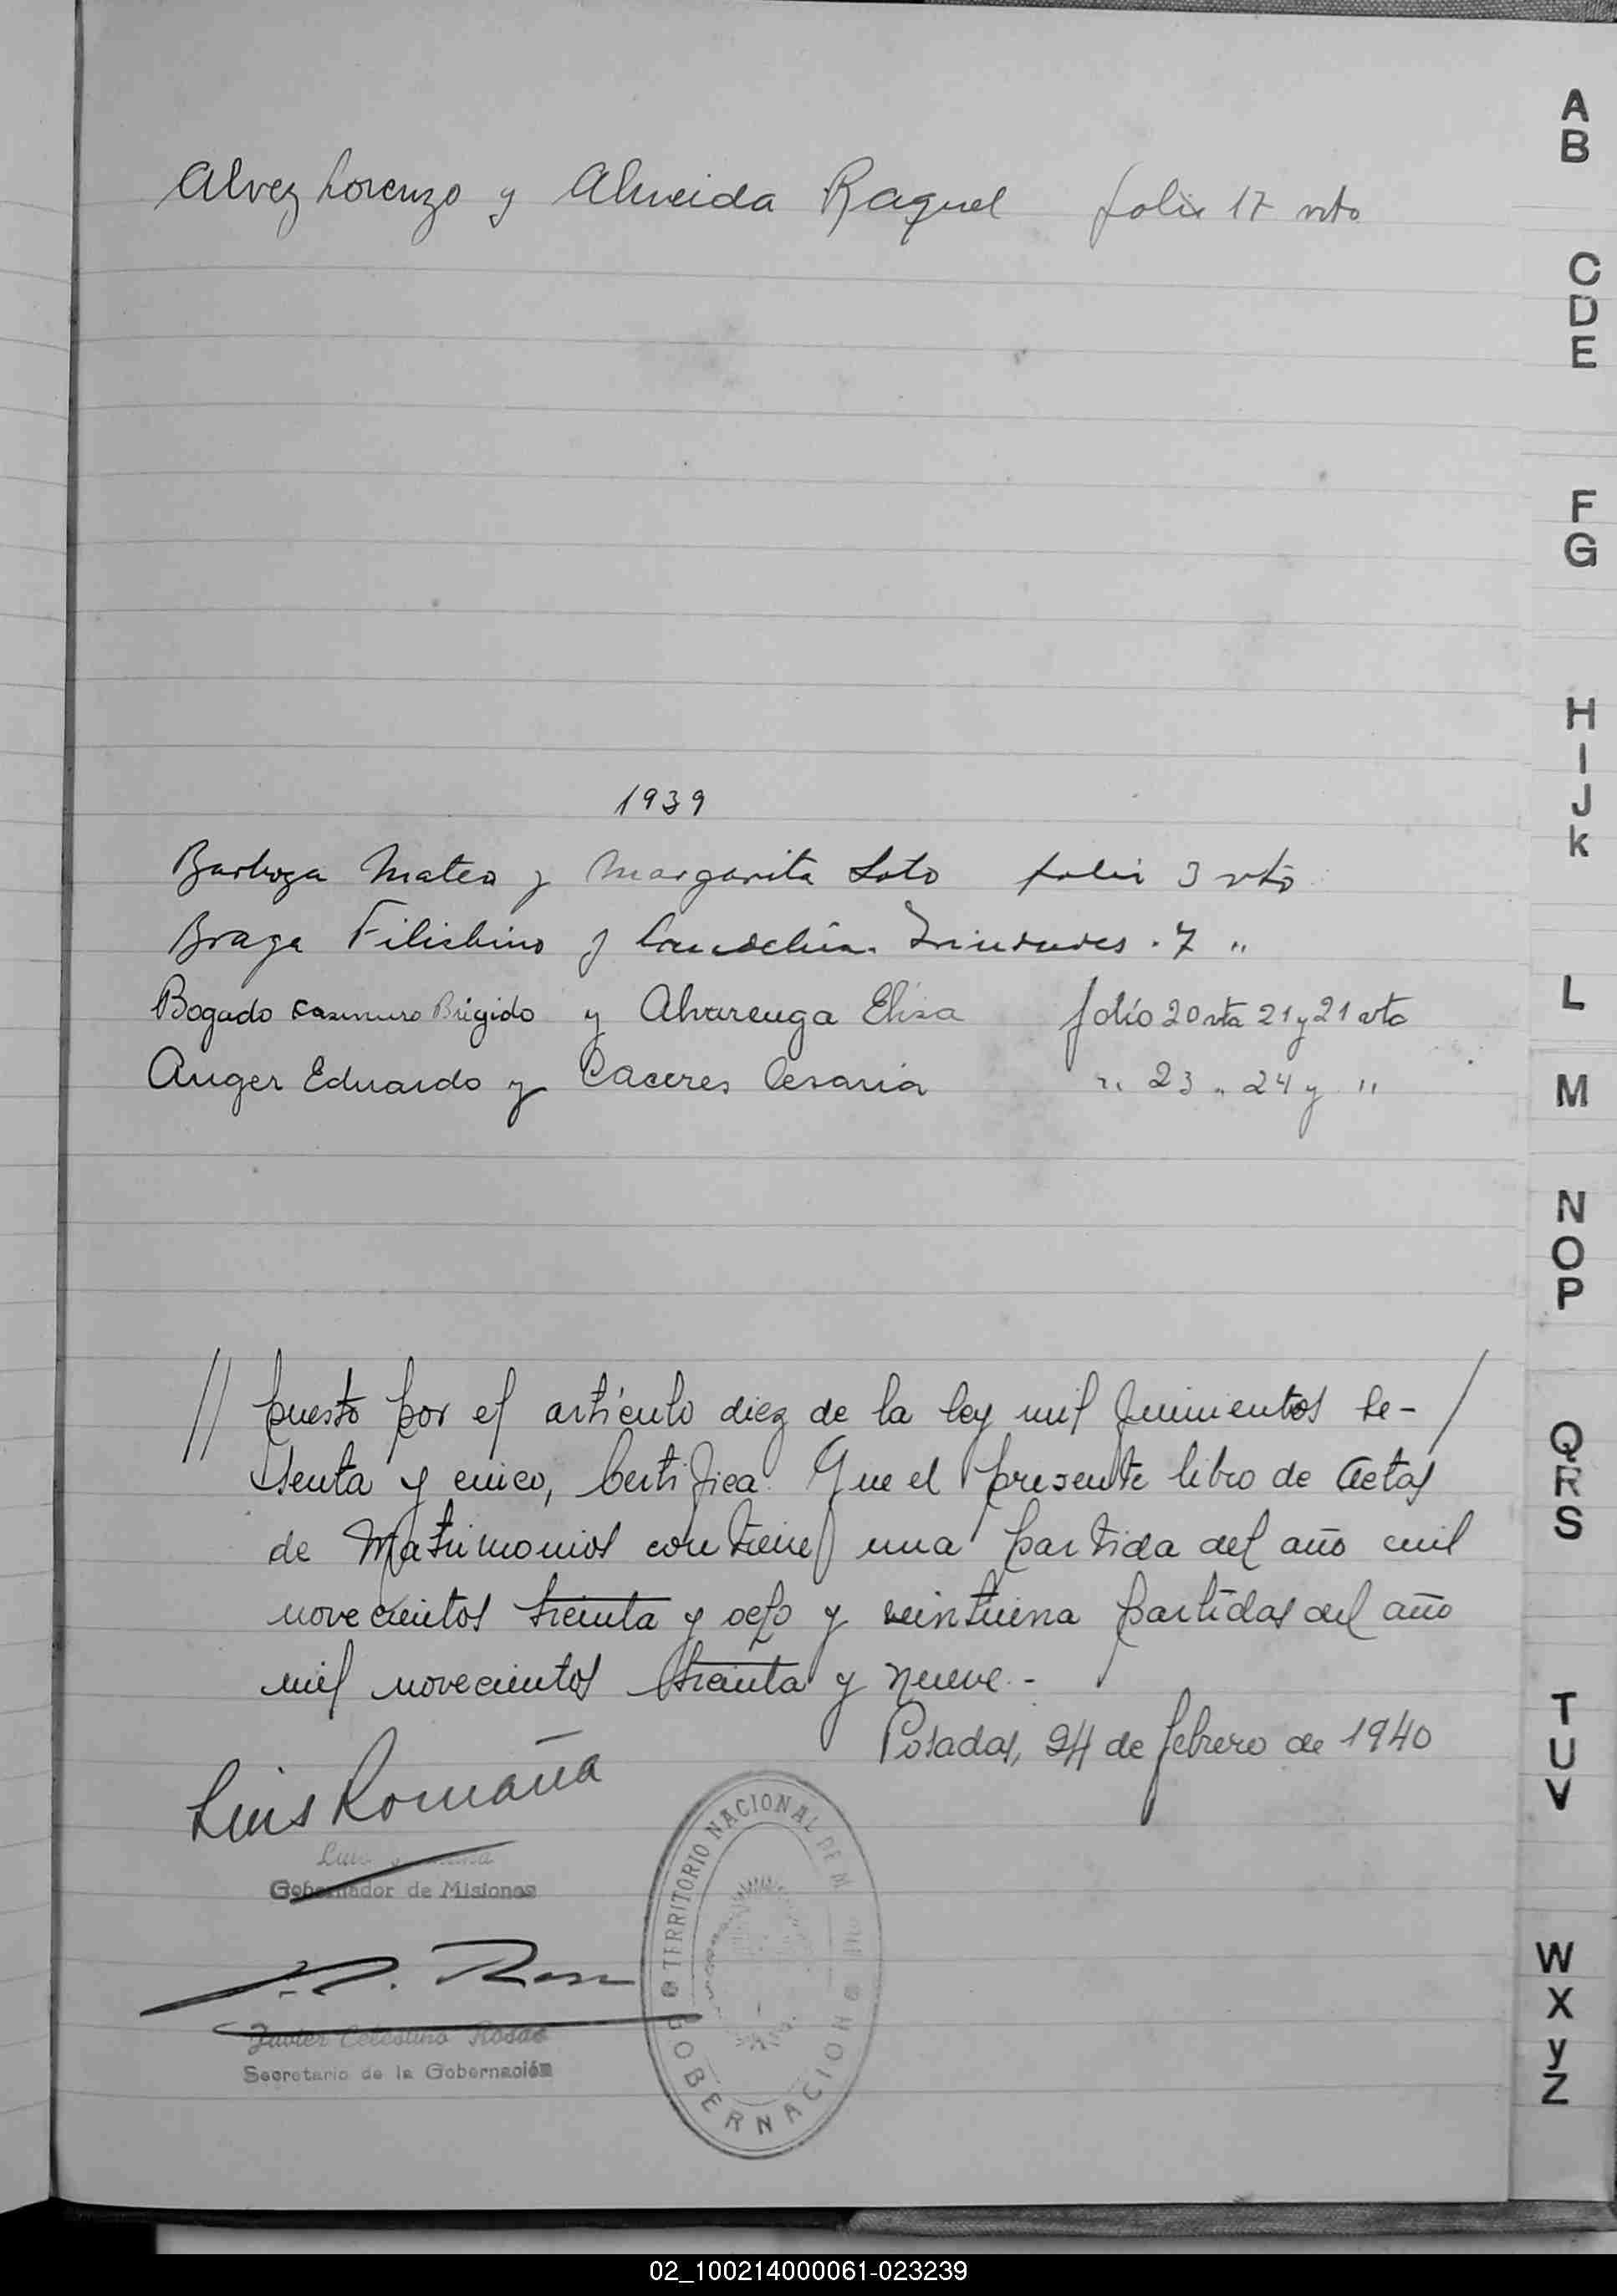 Alvez Lorenzo y Almeida Raquel folio 17 vto
1939
Barboza Mateo y Margarita Soto folio 3 vto
Braga Filisbino y . 7 "
Bogado Casimiro Brigido y Alvarenga Elisa folio 20 vta 21 y 21 vto
Auger Eduardo y Caceres Cesaria " 23 " 24 y "
// puesto por el artículo diez de la ley mil quinientos se- /
senta y cinco, Certifica: Que el presente libro de Actas
de Matrimonios contiene una partida del año mil
novecientos treinta y ocho y veintiuna partidas del año
mil novecientos treinta y nueve.-
Posadas, 24 de febrero de 1940
Luis Romaña
Gobernador de Misiones
Javier Celestino Rosas
Secretario de la Gobernación
TERRITORIO NACIONAL DE M
GOBERNACION
A
B
C
D
E
F
G
H
I
J
k
L
M
N
O
P
Q
R
S
T
U
V
W
X
y
Z
02_100214000061-023239